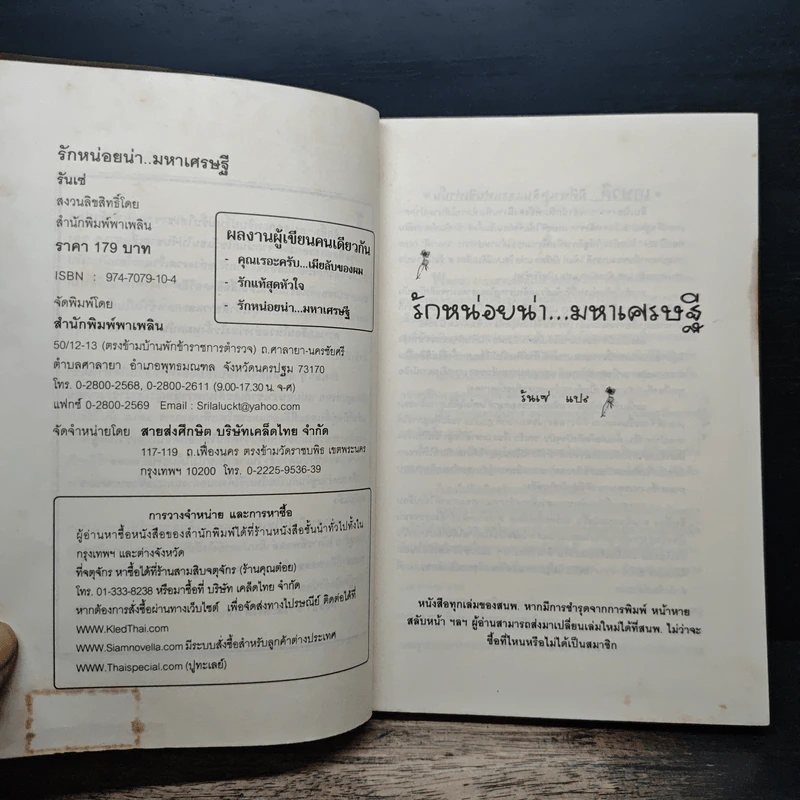 รักหน่อยน่า..มหาเศรษฐี
รันเซ่
สงวนลิขสิทธิ์โดย
สำนักพิมพ์พาเพลิน
ราคา 179 บาท
ISBN : 974-7079-10-4
ผลงานผู้เขียนคนเดียวกัน
- คุณเรอะครับ...เมียลับของผม
- รักแท้สุดหัวใจ
- รักหน่อยน่า...มหาเศรษฐี
จัดพิมพ์โดย
สำนักพิมพ์พาเพลิน
50/12-13 (ตรงข้ามบ้านพักข้าราชการตำรวจ) ถ.ศาลายา-นครชัยศรี
ตำบลศาลายา อำเภอพุทธมณฑล จังหวัดนครปฐม 73170
โทร. 0-2800-2568, 0-2800-2611 (9.00-17.30 น. จ-ศ)
แฟกซ์ 0-2800-2569 Email : Srilaluckt@yahoo.com
จัดจำหน่ายโดย สายส่งศึกษิต บริษัทเคล็ดไทย จำกัด
117-119 ถ.เฟื่องนคร ตรงข้ามวัดราชบพิธ เขตพระนคร
กรุงเทพฯ 10200 โทร. 0-2225-9536-39
การวางจำหน่าย และการหาซื้อ
ผู้อ่านหาซื้อหนังสือของสำนักพิมพ์ได้ที่ร้านหนังสือชั้นนำทั่วไปทั้งใน
กรุงเทพฯ และต่างจังหวัด
ที่จตุจักร หาซื้อได้ที่ร้านสามสิบจตุจักร (ร้านคุณต๋อย)
โทร. 01-333-8238 หรือมาซื้อที่ บริษัท เคล็ดไทย จำกัด
หากต้องการสั่งซื้อผ่านทางเว็บไซต์ เพื่อจัดส่งทางไปรษณีย์ ติดต่อได้ที่
WWW.KledThai.com
WWW.Siamnovella.com มีระบบสั่งซื้อสำหรับลูกค้าต่างประเทศ
WWW.Thaispecial.com (ปูทะเลย์)
รักหน่อยน่า...มหาเศรษฐี
รันเซ่ แปะ
หนังสือทุกเล่มของสนพ. หากมีการชำรุดจากการพิมพ์ หน้าหาย
สลับหน้า ฯลฯ ผู้อ่านสามารถส่งมาเปลี่ยนเล่มใหม่ได้ที่สนพ. ไม่ว่าจะ
ซื้อที่ไหนหรือไม่ได้เป็นสมาชิก